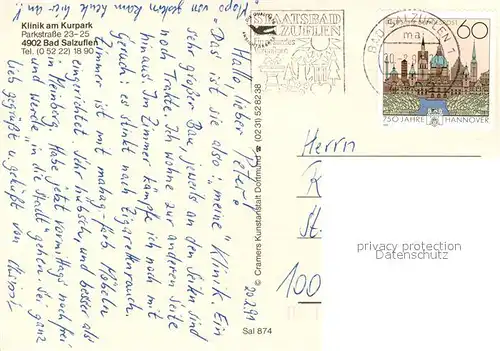 Klinik am Kurpark
Parkstraße 23-25
4902 Bad Salzuflen
Tel. (0 52 22) 18 90
Hallo, lieber Peter!
"Das ist sie also: "meine" Klinik. Ein
sehr großer Bau, jeweils an den Seiten sind
noch Trakte. Ich wohne zur anderen Seite
hinaus. Im Zimmer kämpfe ich noch mit
Geruch: es stinkt nach Zigarettenrauch.
Zimmer ist mit mahag.-farb. Möbeln
eingerichtet. Sehr hübsch, und besser als
in Habe jetzt vormittags noch frei
und werde "in die Stadt" gehen. Sei ganz
lieb gegrüßt u. geküßt von
20.2.91
© Cramers Kunstanstalt Dortmund ☎ (0231) 528238
Sal 874
STAATSBAD
SALZUFLEN
BAD SALZUFLEN 1
DEUTSCHE BUNDESPOST
60
750 JAHRE HANNOVER
Herrn
K
St.
100
privacy protection
DELCAMPE